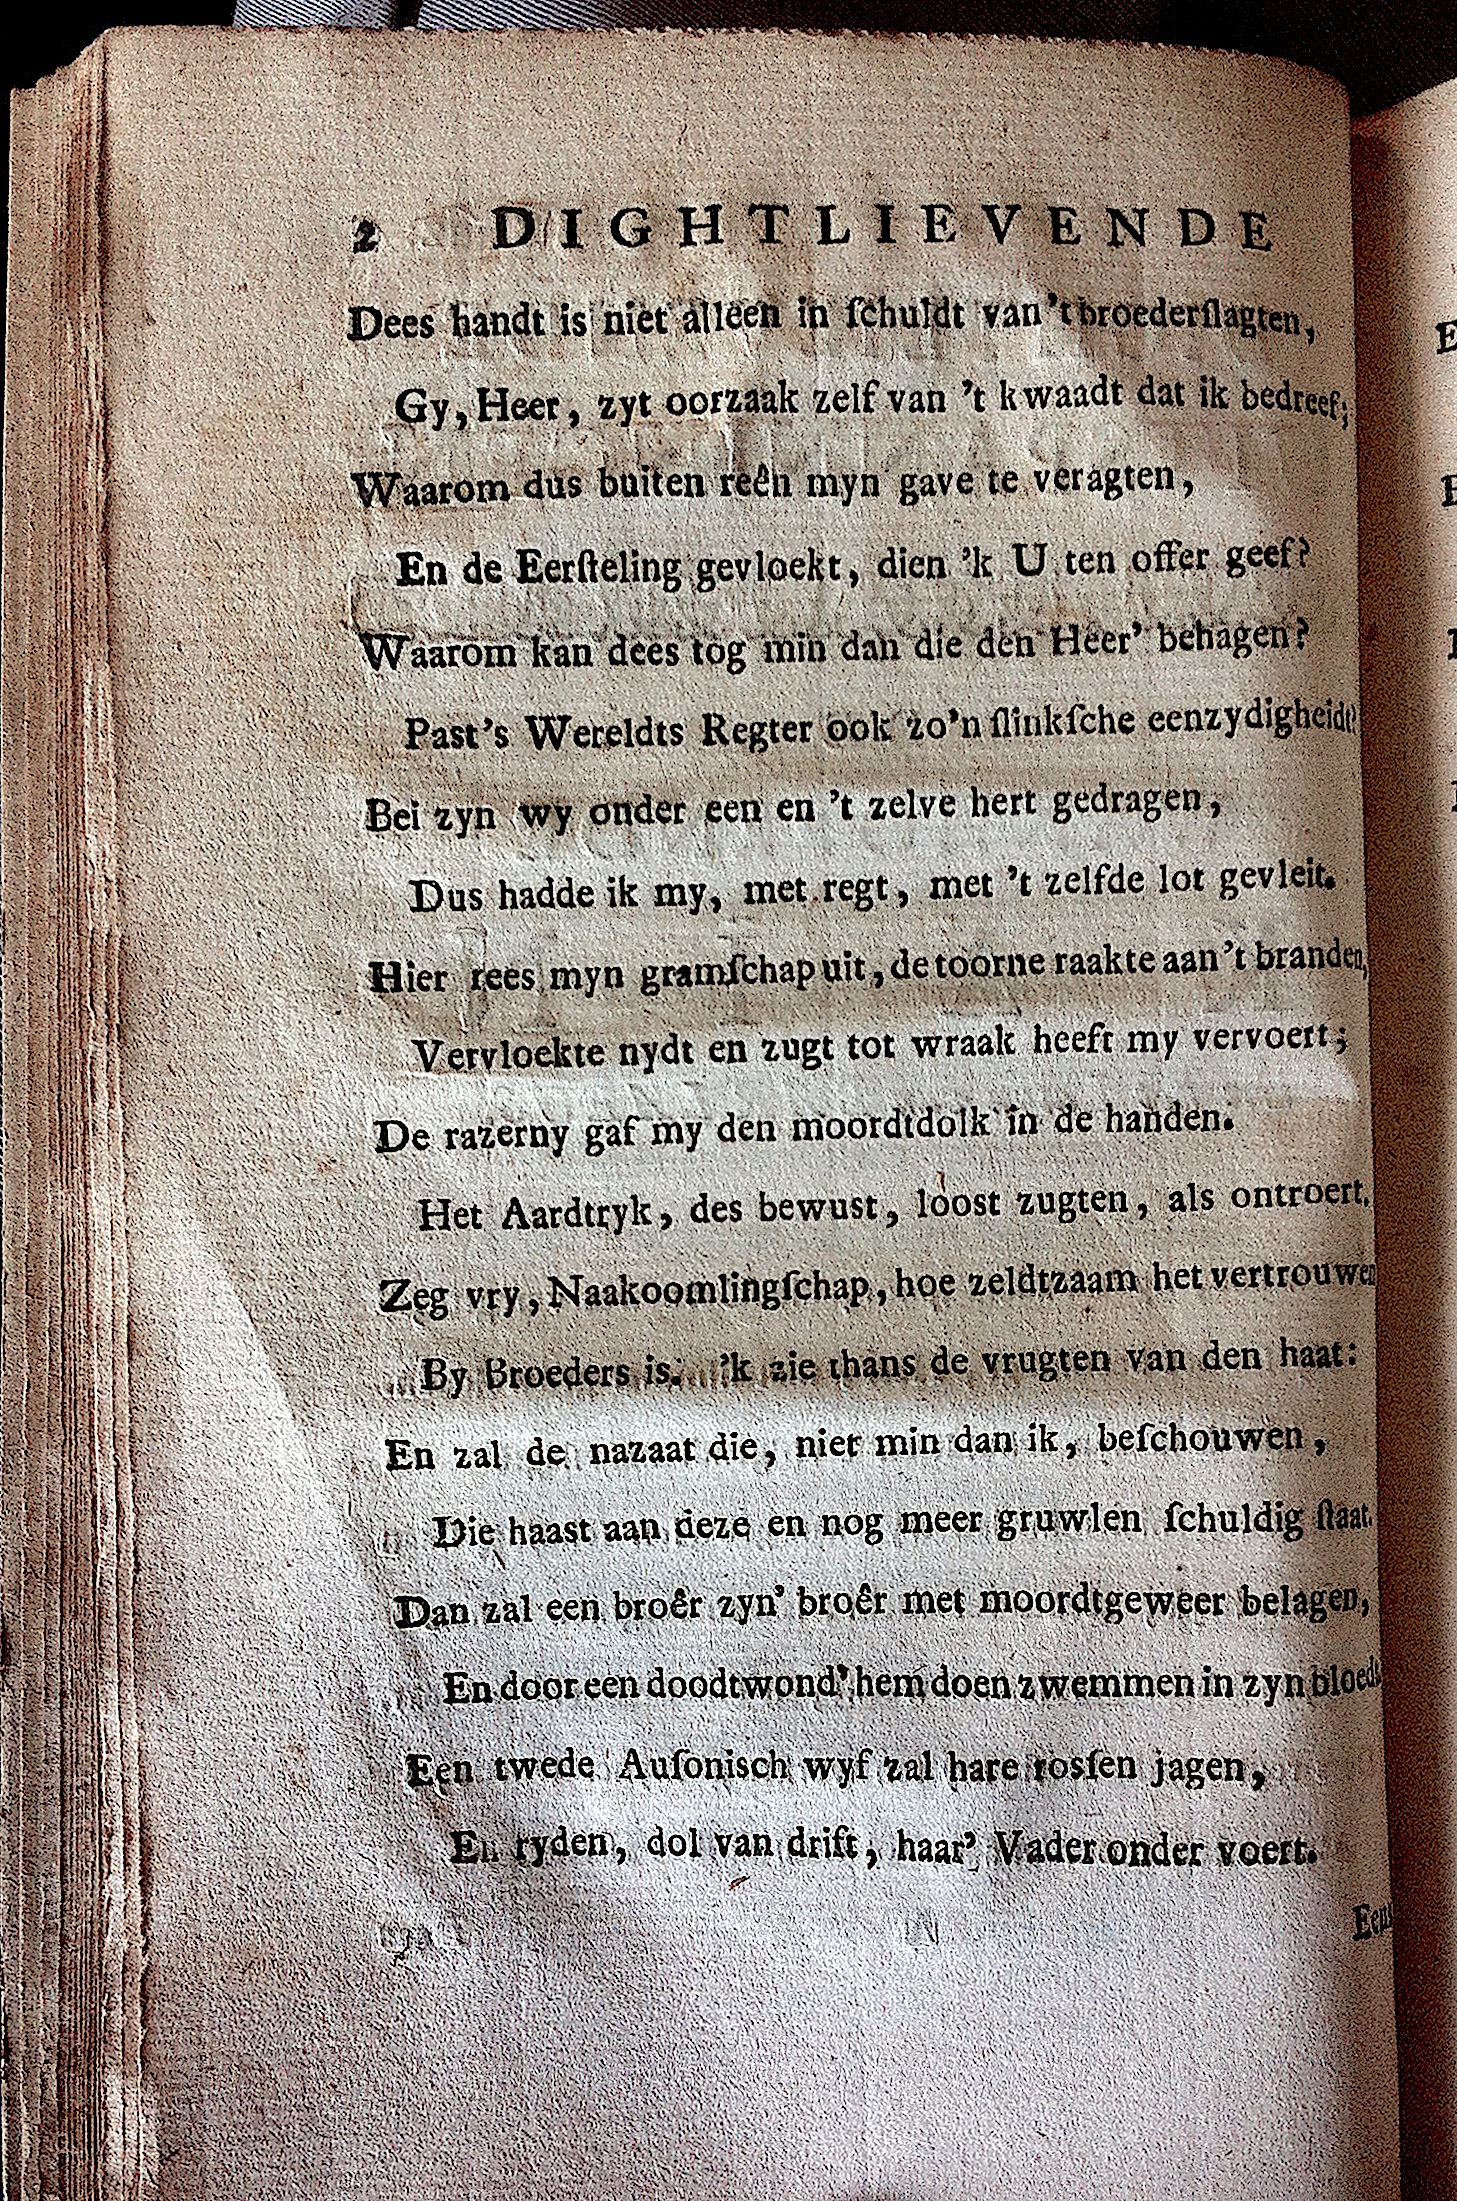 2 DIGHTLIEVENDE
Dees handt is niet alleen in ſchuldt van 't broederſlagten,
Gy, Heer, zyt oorzaak zelf van 't kwaadt dat ik bedreef;
Waarom dus buiten reên myn gave te veragten,
En de Eerſteling gevloekt, dien 'k U ten offer geef?
Waarom kan dees tog min dan die den Heer' behagen?
Past's Wereldts Regter ook zo'n ſlinkſche eenzydigheidt?
Bei zyn wy onder een en 't zelve hert gedragen,
Dus hadde ik my, met regt, met 't zelfde lot gevleit.
Hier rees myn gramſchap uit, de toorne raakte aan 't branden,
Vervloekte nydt en zugt tot wraak heeft my vervoert;
De razerny gaf my den moordtdolk in de handen.
Het Aardtryk, des bewust, loost zugten, als ontroert.
Zeg vry, Naakoomlingſchap, hoe zeldtzaam het vertrouwen
By Broeders is. 'k zie thans de vrugten van den haat:
En zal de nazaat die, niet min dan ik, beſchouwen,
Die haast aan deze en nog meer gruwlen ſchuldig ſtaat.
Dan zal een broêr zyn' broêr met moordtgeweer belagen,
En door een doodtwond' hem doen zwemmen in zyn bloedt
Een twede Auſonisch wyf zal hare rosſen jagen,
En ryden, dol van drift, haar' Vader onder voert.
Eens
E